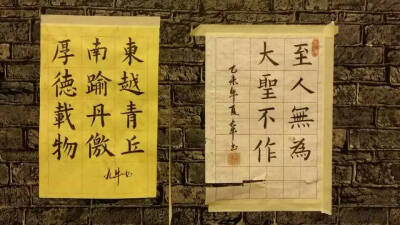 東越青丘
南踰丹徼
厚德載物
至人無為
大聖不作
乙未年夏